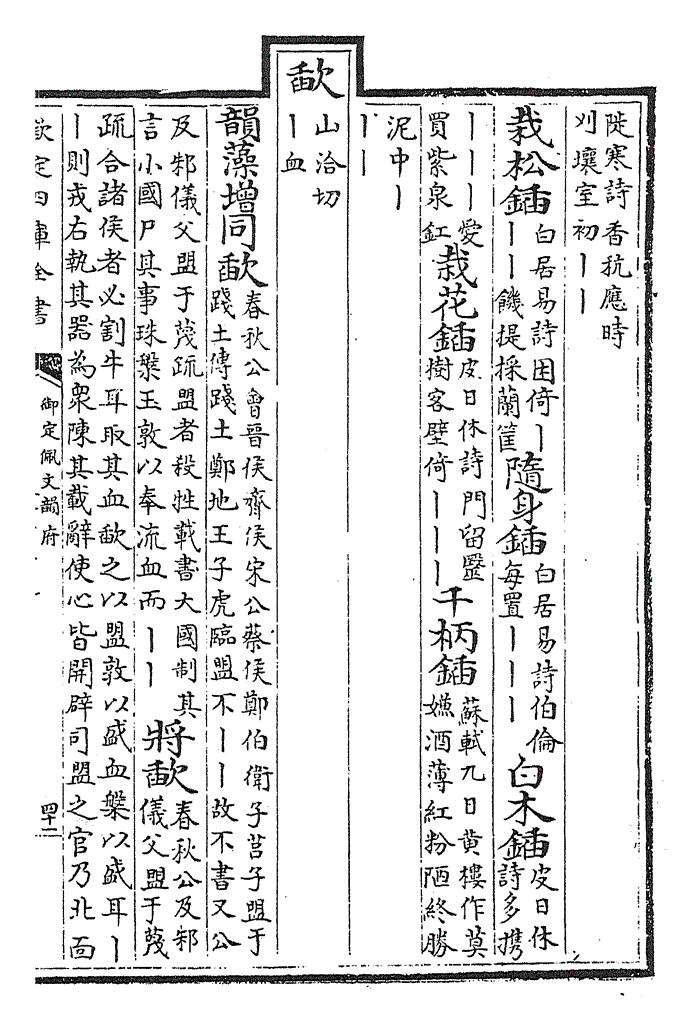 陡寒詩香秔應時
刈壤室初｜｜
栽松鍤白居易詩困倚｜｜｜饑提採蘭筐隨身鍤白居易詩伯倫每置｜｜｜白木鍤皮日休詩多携
｜｜｜愛買紫泉釭栽花鍤皮日休詩門留䍤樹客壁倚｜｜｜千柄鍤蘇軾九日黄樓作莫嫌酒薄紅粉陋終勝
泥中｜
｜｜
歃山洽切
｜血
韻藻增同歃春秋公會晉侯齊侯宋公蔡侯鄭伯衛子莒子盟于踐土傳踐土鄭地王子虎臨盟不｜｜故不書又公
及邾儀父盟于蔑疏盟者殺牲載書大國制其言小國尸其事珠槃玉敦以奉流血而｜｜將歃春秋公及邾儀父盟于蔑
疏合諸侯者必割牛耳取其血歃之以盟敦以盛血槃以盛耳｜｜則戎右執其器為衆陳其載辭使心皆開辟司盟之官乃北面
欽定四庫全書
御定佩文韻府
四十二